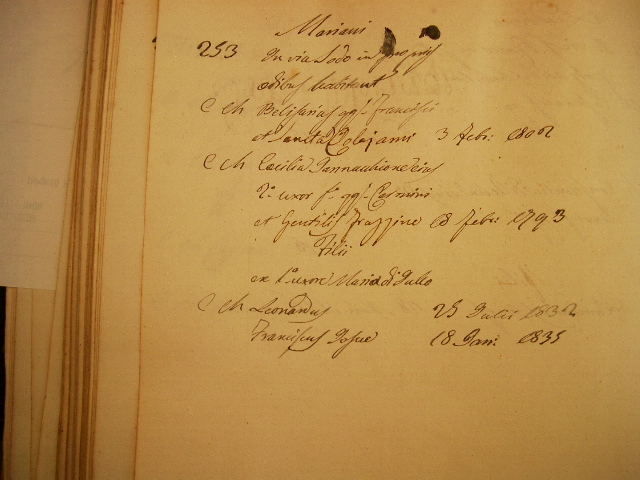 Mariani
253 In via Lodo in propriis
ædibus habitant
C Ch Belisarius qq.m Francisci
et Sancta Colajanni 3 Febr: 1802
C Ch Cæcilia Iannacchione ejus
2.a uxor f.a qq.m Carmini
et Gentilis Frazzine 8 Febr: 1793
Filii
ex 1.a uxore Maria di Gallo
C Ch Leonardus 25 Julii 1832
Franciscus Josue 18 Jan: 1835